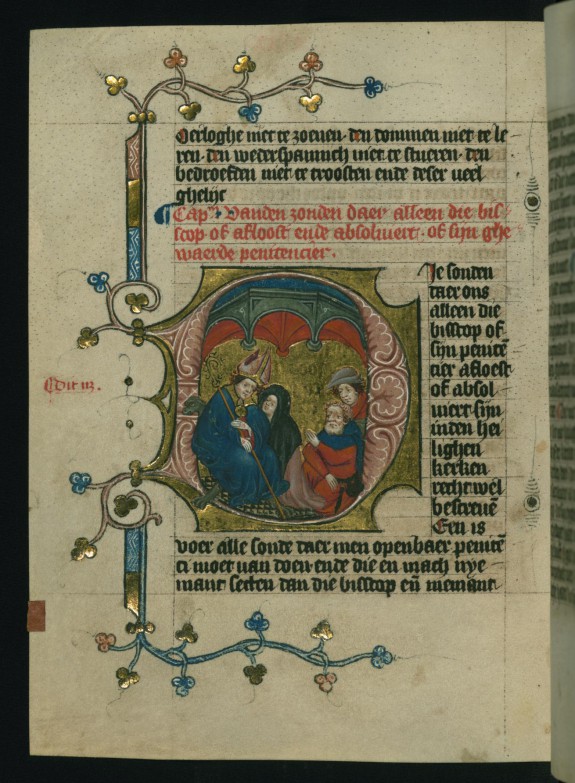 Oerloghe niet te zoenen · den dommen niet te le
ren · den wederspannich niet te stueren · den
bedroefden niet te troosten ende deser veel
ghelijc
Cap. Vanden zonden daer alleen die bis
scop of afloost ende absolviert · of sijn ghe
waerde penitencier ·
Die sonden
daer ons
alleen die
bisscop of
sijn penitē
cier afloest
of absol
viert sijn
inden hei
lighen
kerken
recht wel
bescreuē
Een is
voer alle sonde daer men openbaer penitē
ci moet van doen ende die en mach nye
mant setten dan die bisscop eñ niemant